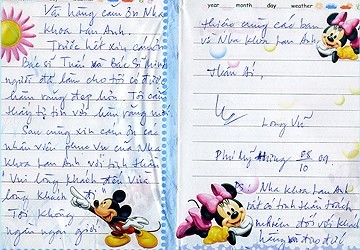 Vài hàng cảm ơn Nha
Khoa Lan Anh.
Trước hết xin cảm ơn
Bác sĩ Tuấn và Bác sĩ Minh
người đã làm cho tôi có được
hàm răng đẹp hơn. Tôi cảm
thấy tự tin với hàm răng mới
Sau cùng xin cảm ơn các
nhân viên phục vụ của Nha
Khoa Lan Anh với tinh thần
"Vui lòng khách đến Vừa
lòng khách đi"
Tôi không
ngần ngại giới
year month day weather
thiệu cùng các bạn
về Nha Khoa Lan Anh.
Thân Ái,
Long Vũ
Phú Mỹ Hưng 28/10 09.
Nha Khoa Lan Anh
rất có tinh thần trách
nhiệm đối với khách
hàng